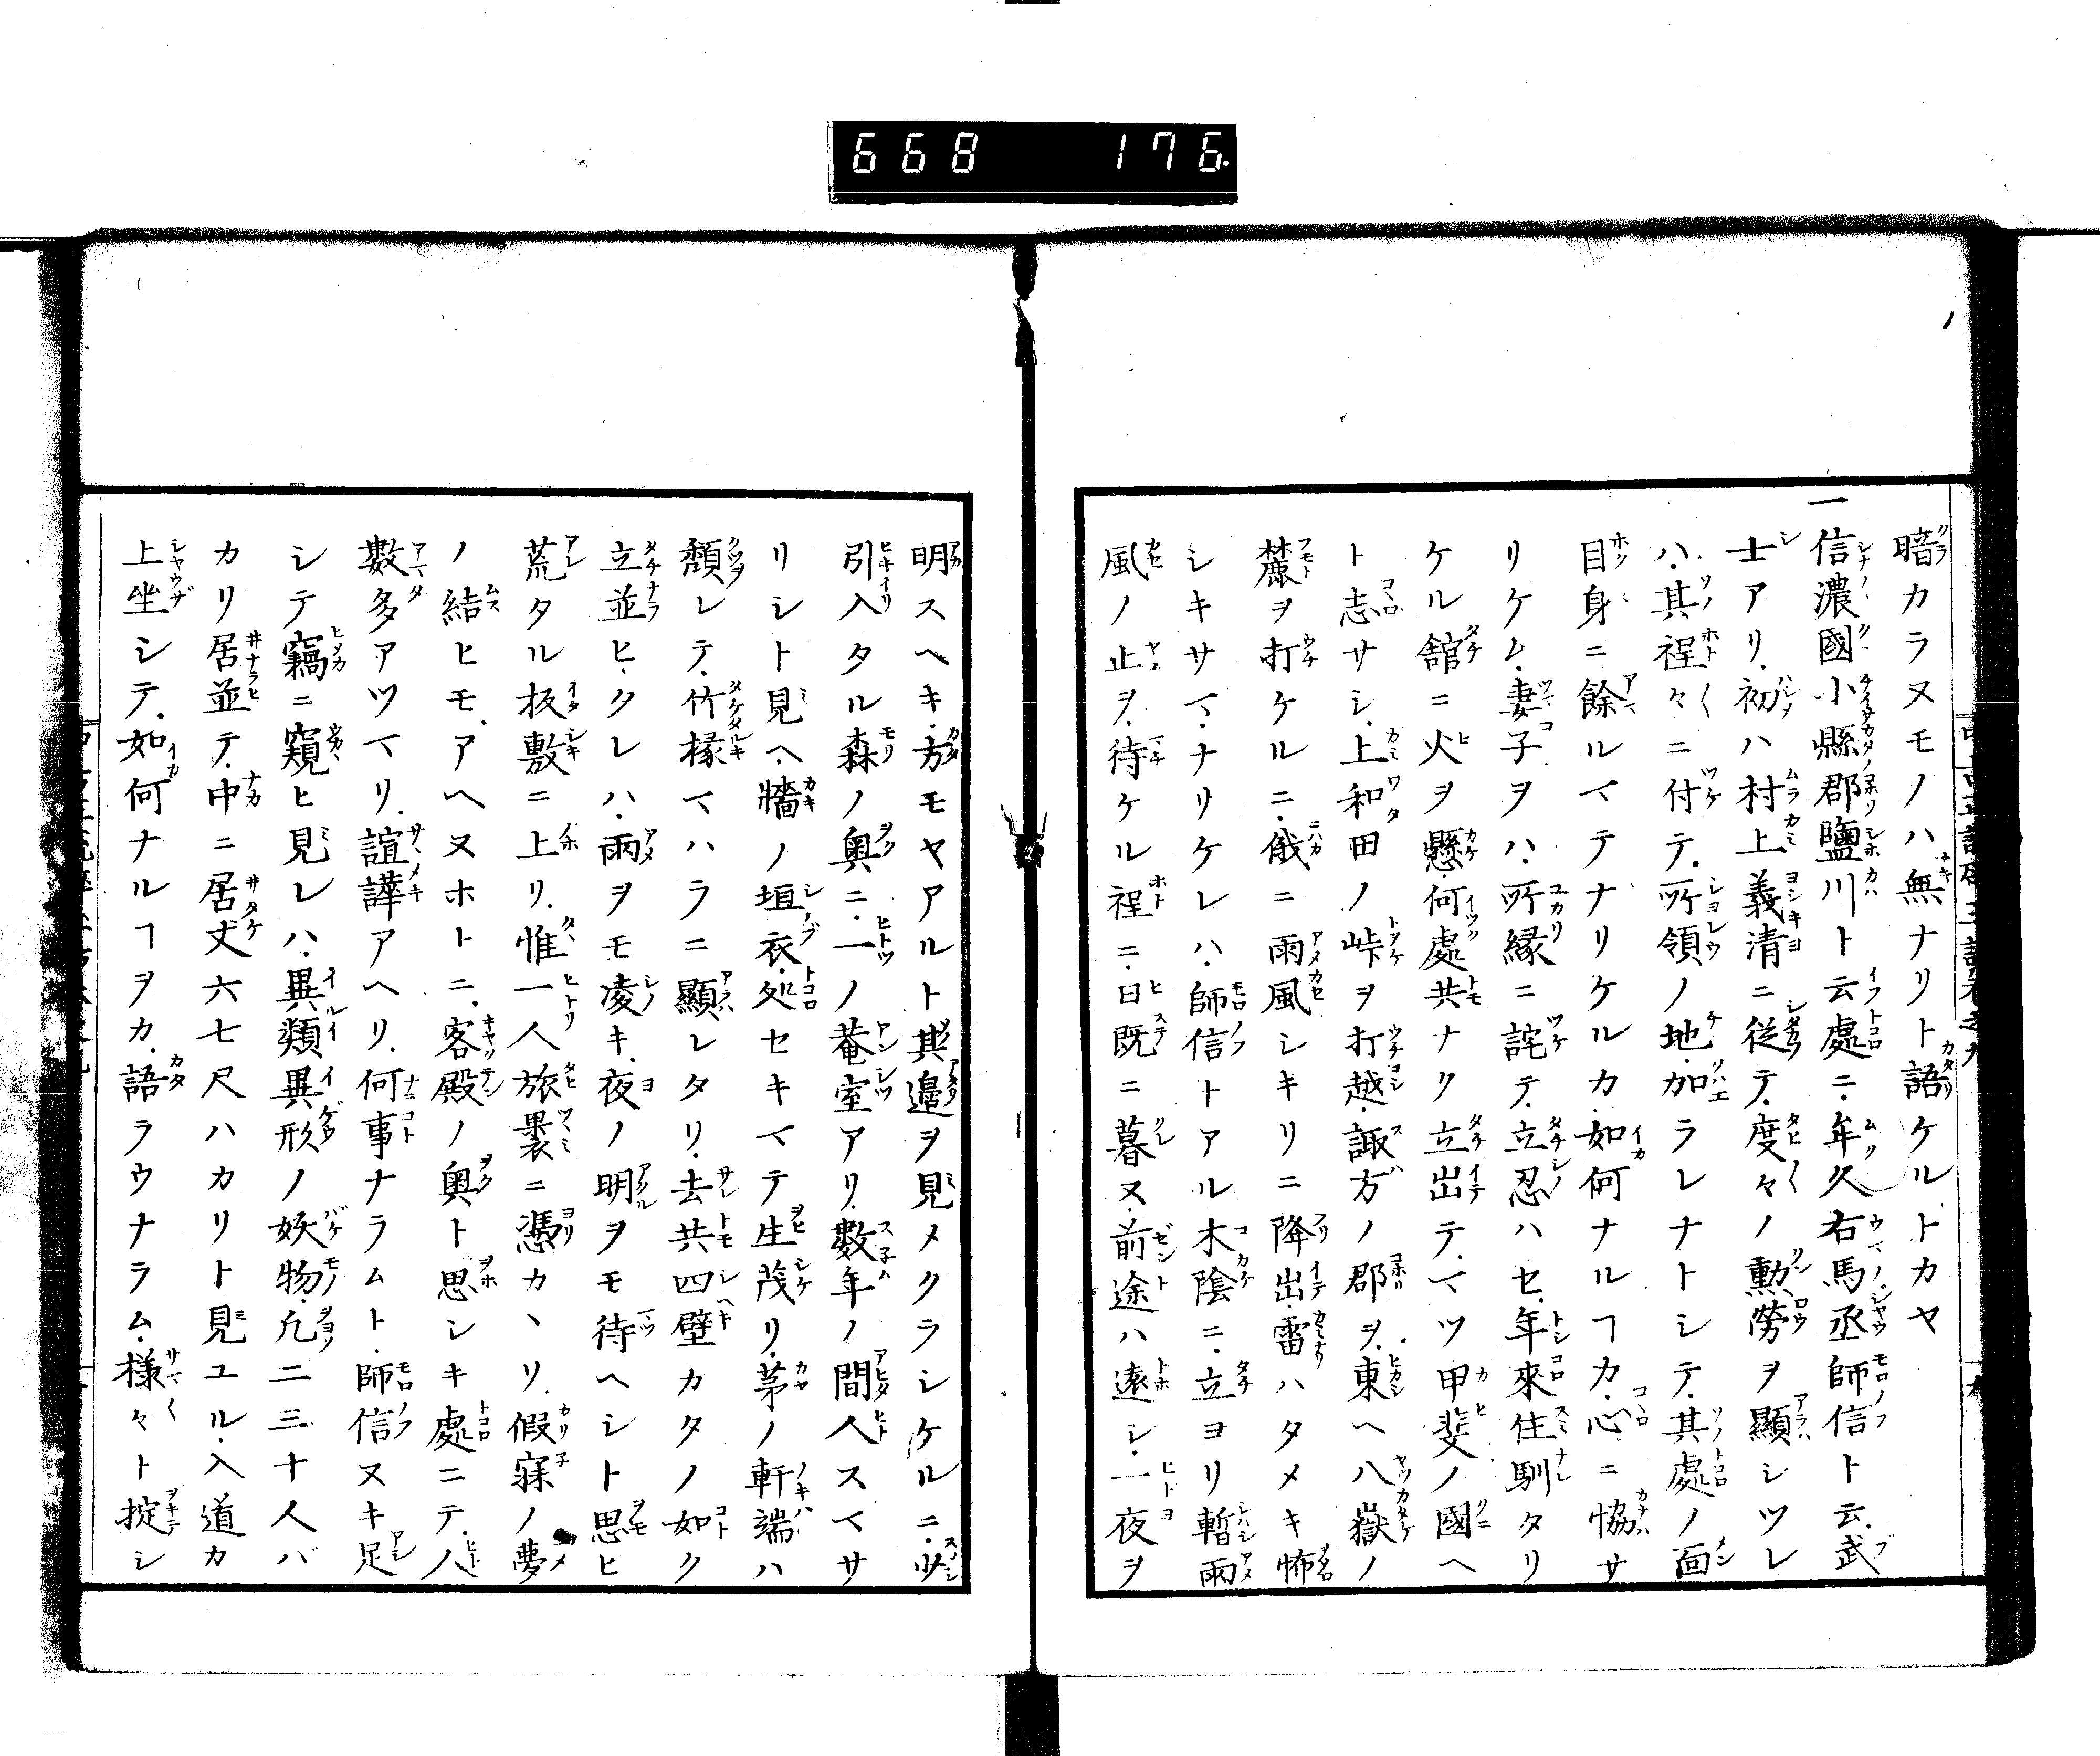 668 176
暗カラヌモノハ無ナリト語ケルトカヤ
一信濃國小縣郡鹽川ト云處ニ年久右馬丞師信ト云武
士アリ初ハ村上義清ニ従テ度々ノ勳勞ヲ顯シツレ
ハ其程々ニ付テ所領ノ地加ラレナトシテ其處ノ面
目身ニ餘ルマテナリケルカ如何ナルヿカ心ニ恊サ
リケム妻子ヲハ所縁ニ詫テ立忍ハセ年來住馴タリ
ケル舘ニ火ヲ懸何處共ナク立出テマツ甲斐ノ國ヘ
ト志サシ上和田ノ峠ヲ打越諏方ノ郡ヲ東ヘ八嶽ノ
麓ヲ打ケルニ俄ニ雨風シキリニ降出雷ハタメキ怖
シキサマナリケレハ師信トアル木陰ニ立ヨリ暫雨
風ノ止ヲ待ケル程ニ日既ニ暮ヌ前途ハ遠シ一夜ヲ
明スヘキ方モヤアルト其邉ヲ見メクラシケルニ少
引入タル森ノ奥ニ一ノ菴室アリ數年ノ間人スマサ
リシト見ヘ牆ノ垣衣処セキマテ生茂リ茅ノ軒端ハ
頽レテ竹椽マハラニ顯レタリ去共四壁カタノ如ク
立並ヒタレハ雨ヲモ凌キ夜ノ明ヲモ待ヘシト思ヒ
荒タル板敷ニ上リ惟一人旅裹ニ憑カヽリ假寐ノ夢
ノ結ヒモアヘヌホトニ客殿ノ奥ト思シキ處ニテ人
數多アツマリ諠譁アヘリ何事ナラムト師信ヌキ足
シテ竊ニ窺ヒ見レハ異類異形ノ妖物凢二三十人バ
カリ居並テ中ニ居丈六七尺ハカリト見ユル入道カ
上坐シテ如何ナルヿヲカ語ラウナラム様々ト掟シ